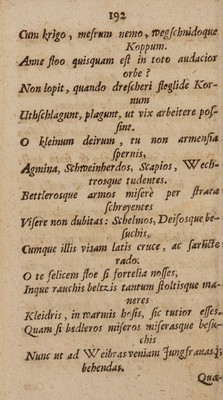 192
Cum krigo, mesrum nemo, wegschnidoque
Koppum.
Anne floo quisquam est in toto audacior
orbe?
Non lopit, quando drescheri fleglide Kor-
num
Uthschlagunt, plagunt, ut vix arbeitere pos-
sint.
O kleinum deirum, tu non armensia
spernis,
Agmina, Schweinherdos, Scapios, Wech-
trosque tudentes.
Bettlerosque armos miserè per strata
schreyentes
Visere non dubitas: Schelmos, Deifosque be-
suchis,
Cumque illis vitam latis cruce, ac
rado.
O te felicem floe si fortelia nosses,
Inque rauchis beltzis tantum stoltisque ma-
neres
Kleidris, in warmis hosis, sic tutior esses.
Quam si bedleros miseros miserasque besu-
chis
Nunc ut ad Weibras veniam Jungfrauasq;
behendas.
Quæ-